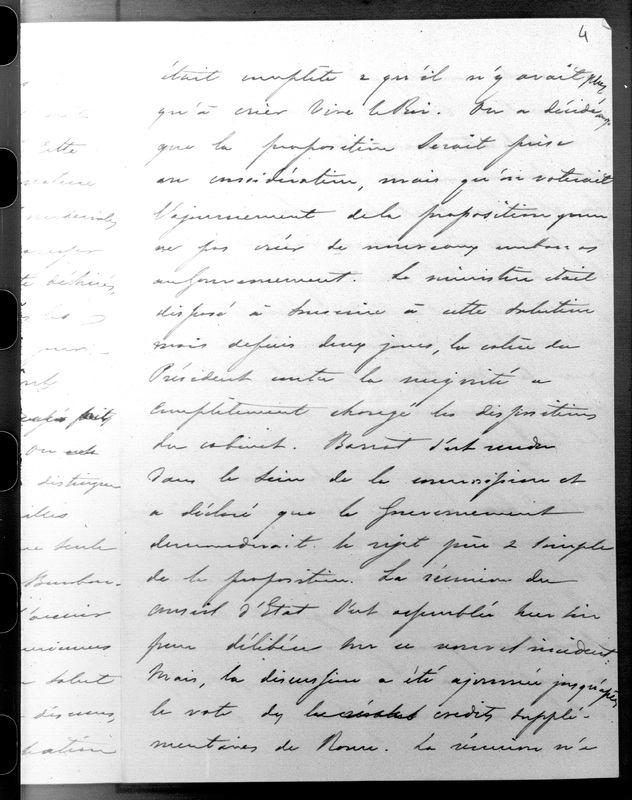 4
était complète & qu'il n'y avait plus
qu'à crier Vive le Roi. On a décidé
que la proposition serait prise
en considération, mais qu'on voterait
l'ajournement de la proposition pour
ne pas créer de nouveaux embarras
au Gouvernement. Le ministère était
disposé à souscrire à cette solution
mais depuis deux jours, la colère du
Président contre la majorité a
complètement changé les dispositions
du cabinet. Barrot s'est rendu
dans le sein de la commission et
a déclaré que le Gouvernement
demanderait le rejet pur & simple
de la proposition. La réunion du
Conseil d'Etat s'est assemblée hier soir
pour délibérer sur ce nouvel incident.
Mais, la discussion a été ajournée jusqu'après
le vote des crédits supplé-
mentaires de Rome. La réunion n'a